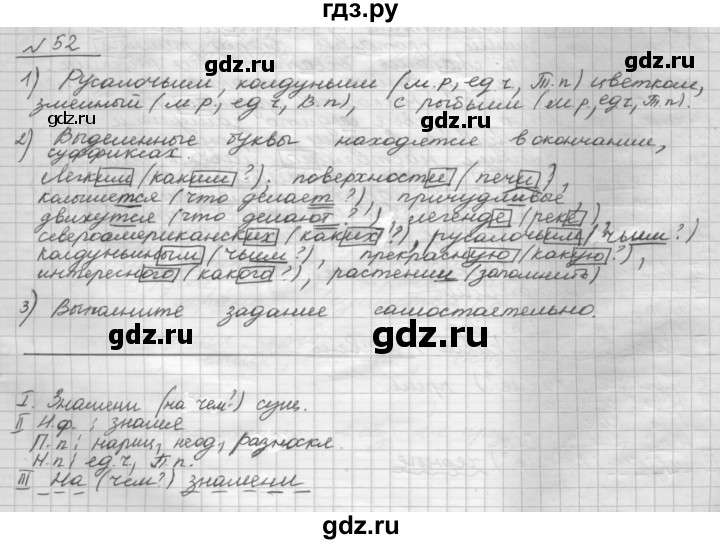 гдз.ру
№ 52
1) Русалочьим, колдуньим (м.р, ед.ч, Т.п) цветком,
змеиный (м.р, ед.ч, В.п), с рыбьим (м.р, ед.ч, Т.п).
2) Выделенные буквы находятся в окончании,
суффиксах.
Легким (каким?), поверхности (печи),
колышется (что делает?), причудливые,
движутся (что делают?), легенде (реке),
североамериканских (каких?), русалочьим (чьим?)
колдуньиным (чьим?), прекрасную (какую?),
интересного (какого?), растении (запомнить)
3) Выполните задание самостоятельно.
I. Знамени (на чем?) сущ.
II Н.ф.: знамя
П.п: нариц, неод, разноскл.
Н.п: ед.ч, П.п.
III На (чем?) знамени
gdz.ru
gdz.ru
gdz.ru
gdz.ru
gdz.ru
gdz.ru
gdz.ru
gdz.ru
gdz.ru
gdz.ru
gdz.ru